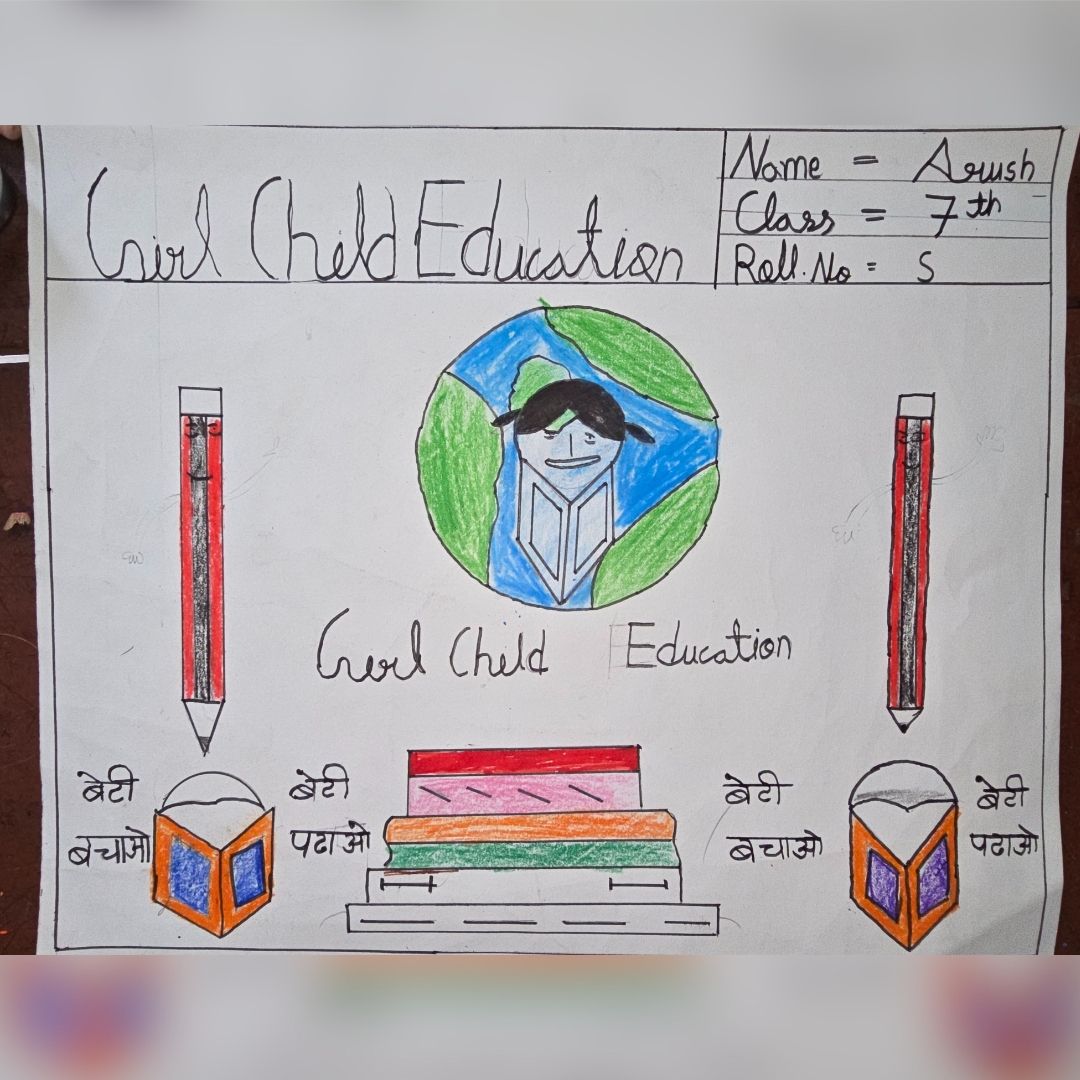 Girl Child Education
Name = Arush
Class = 7th
Roll.No = 5
Girl Child Education
बेटी
बचाओ
बेटी
पढाओ
बेटी
बचाओ
बेटी
पढाओ